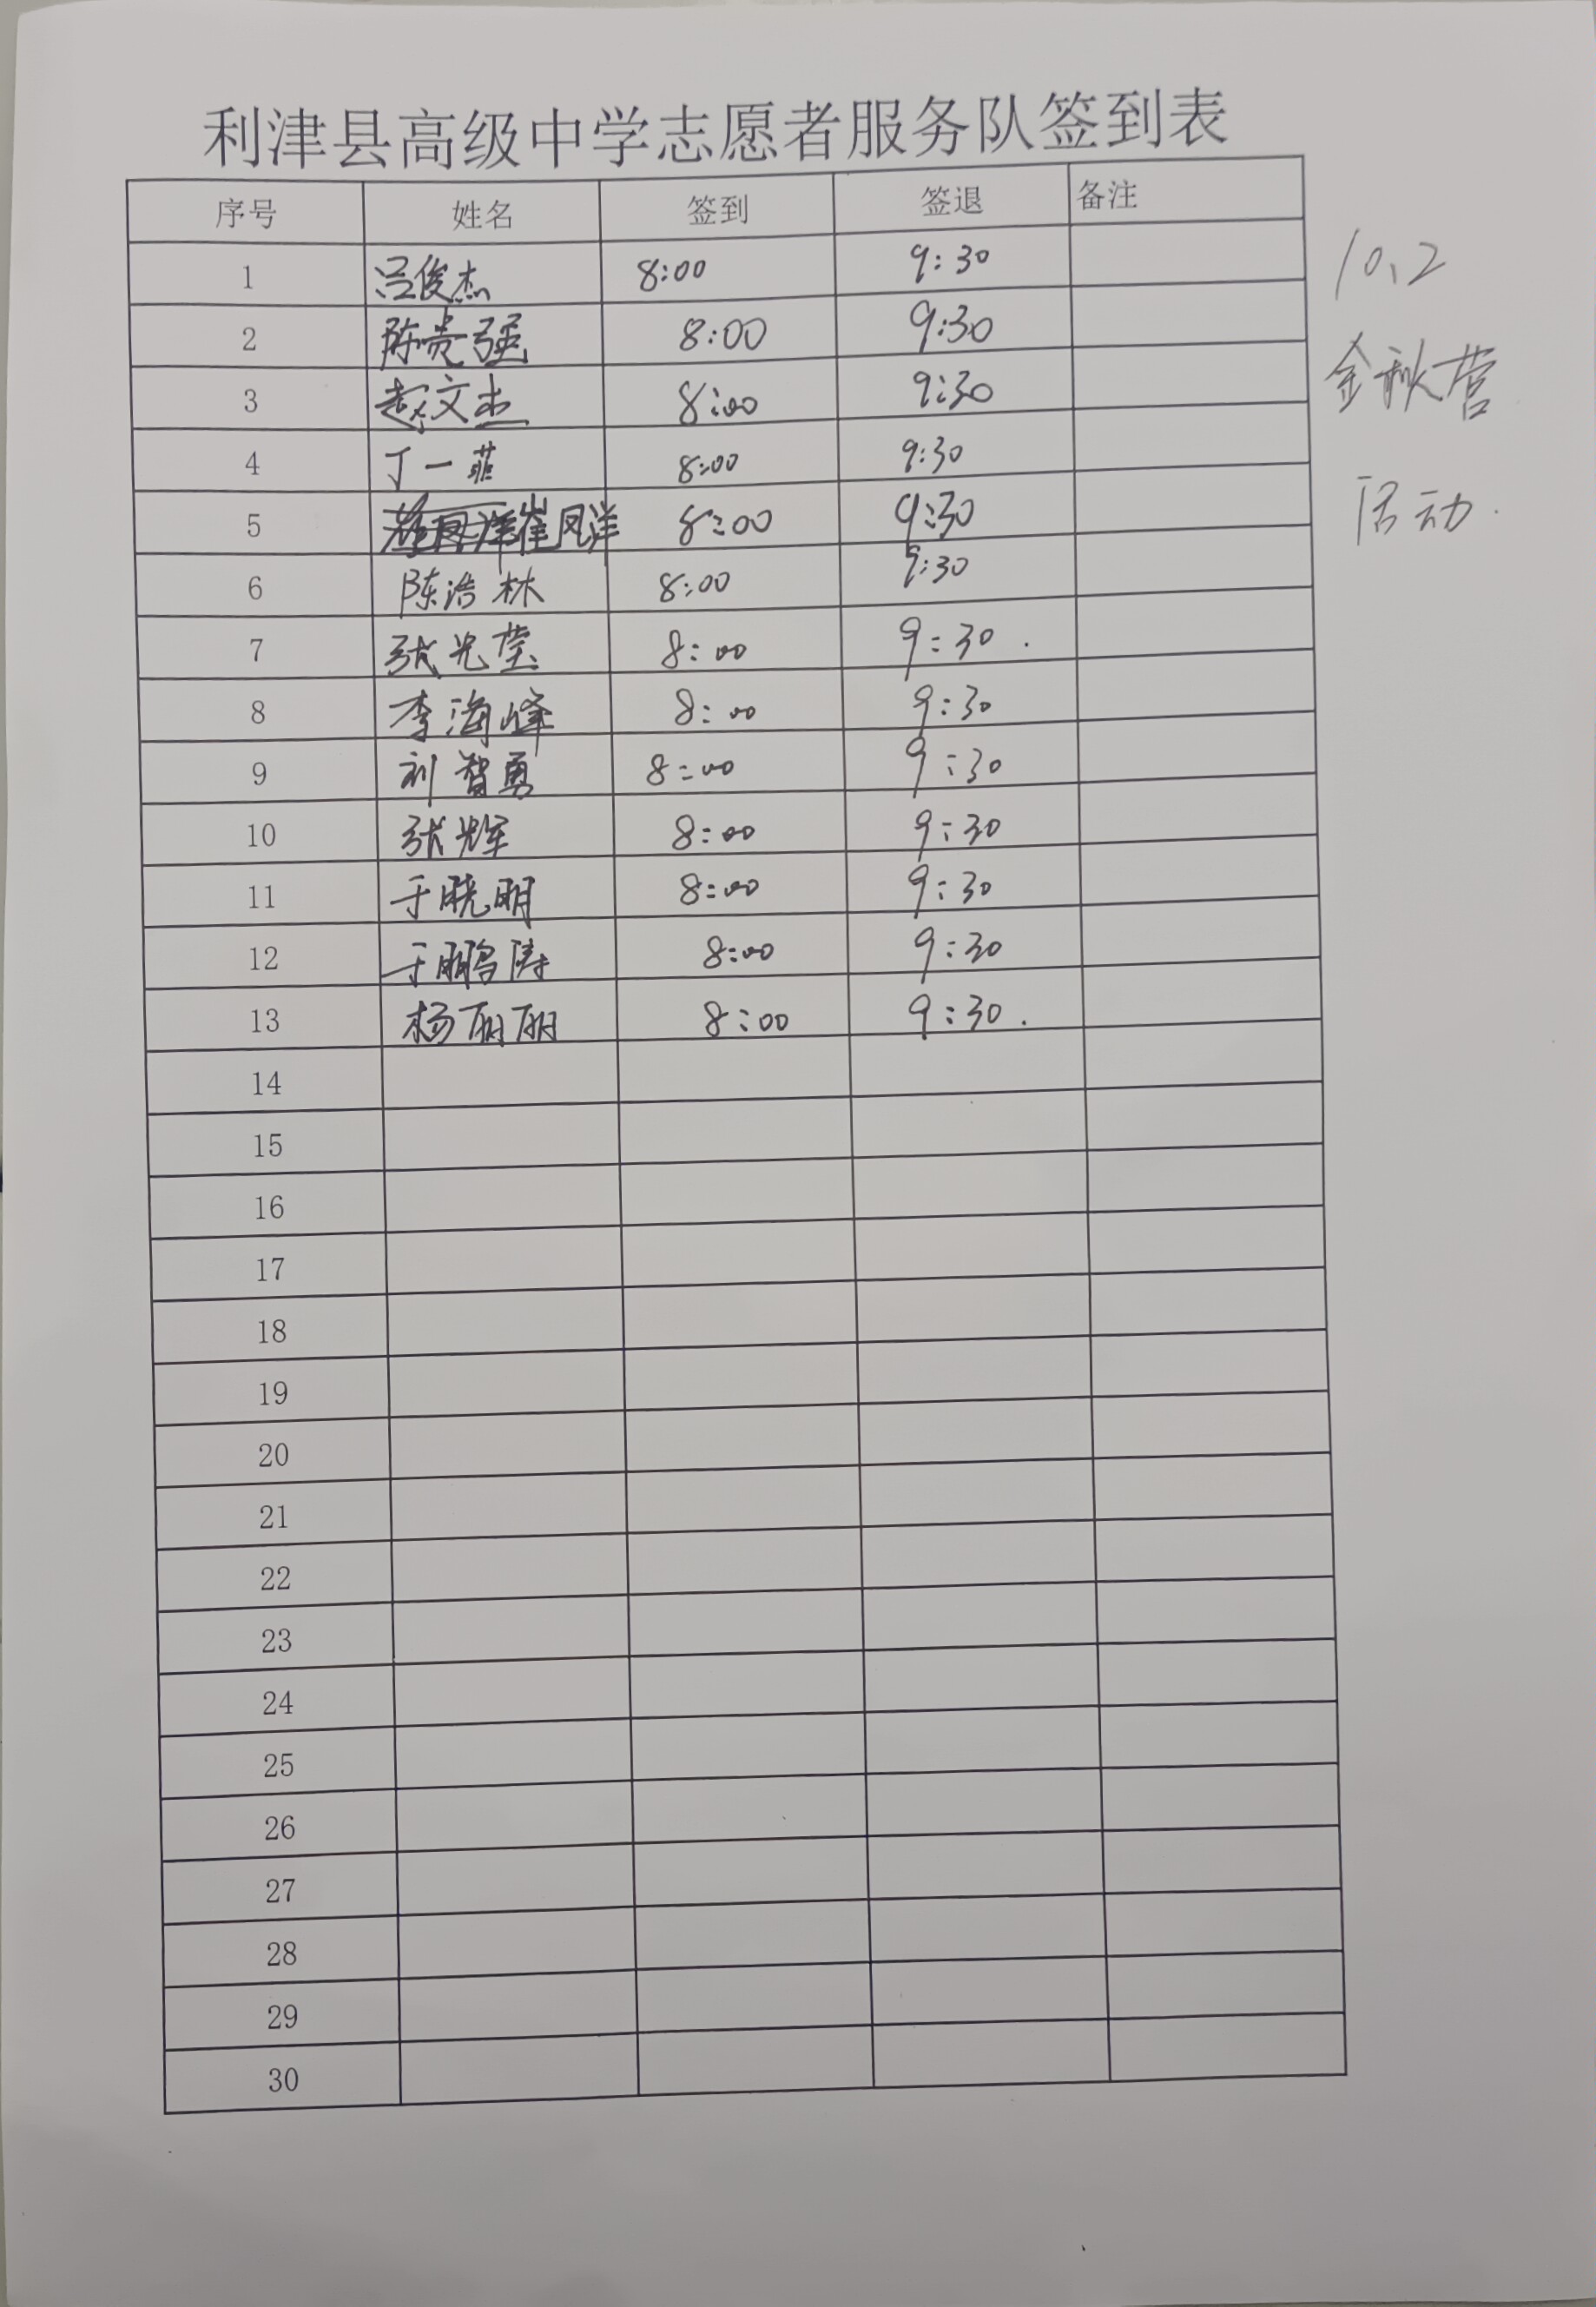 利津县高级中学志愿者服务队签到表
序号 姓名 签到 签退 备注
1 吕俊杰 8:00 9:30
10、2
2 陈贵强 8:00 9:30
3 赵文杰 8:00 9:30
金秋营
4 丁一菲 8:00 9:30
5 崔凤洋 8:00 9:30
活动.
6 陈浩林 8:00 9:30
7 张光莹 8:00 9:30.
8 李海峰 8:00 9:30
9 刘智勇 8:00 9:30
10 张辉 8:00 9:30
11 于晓明 8:00 9:30
12 于鹏涛 8:00 9:30
13 杨丽丽 8:00 9:30.
14
15
16
17
18
19
20
21
22
23
24
25
26
27
28
29
30